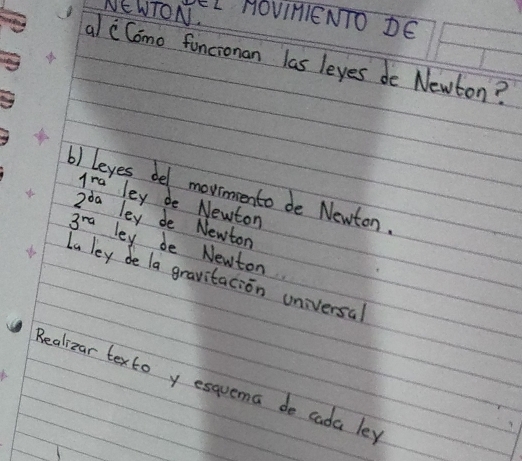 DEL MOVIMIENTO DE
NEWTON.
a) ¿Cómo funcionan las leyes de Newton?
b) Leyes del movimiento de Newton.
1ra ley de Newton
2da ley de Newton
3ra ley de Newton
La ley de la gravitación universal
Realizar texto y esquema de cada ley